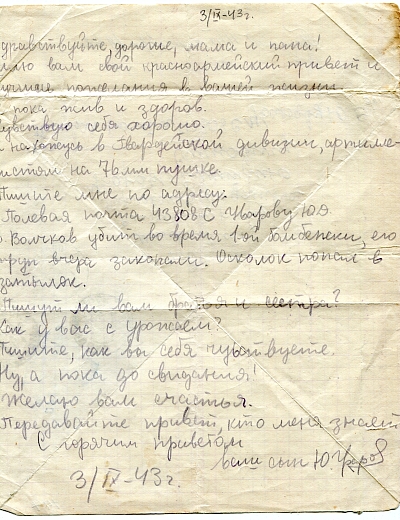 3/IX-43г.
дравствуйте, дорогие, мама и папа!
вам свой красноармейский привет и
пожелания в вашей жизни.
пока жив и здоров.
чувствую себя хорошо.
нахожусь в Гвардейской дивизии, артилле-
истом на 76 мм пушке.
Пишите мне по адресу:
Полевая почта 43808 С Жарову Ю.Я.
Волчков убит во время 1-ой бомбежки, его
вчера закопали. Осколок попал в
затылок.
Пишут ли вам братья и сестра?
Как у вас с урожаем?
Пишите, как вы себя чувствуете.
Ну, а пока до свидания!
Желаю вам счастья.
Передавайте привет, кто меня знает
С горячим приветом
ваш сын Ю.
3/IX-43г.